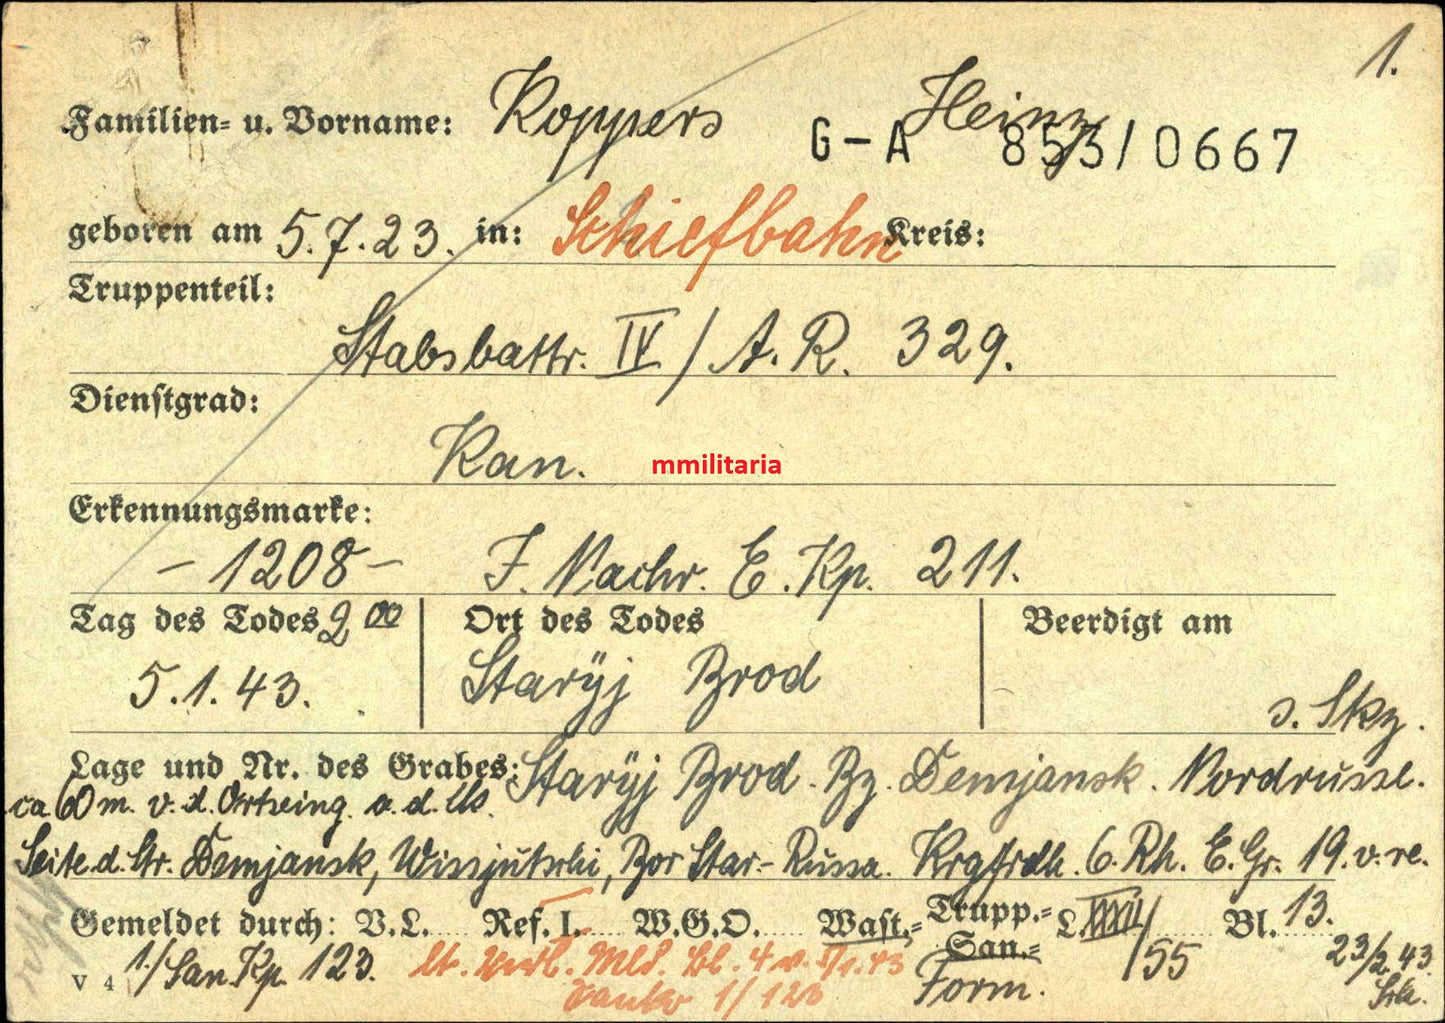 1.
Familien- u. Vorname: Koppers Heinz
G-A 853/0667
geboren am 5.7.23. in: Schiefbahn Kreis:
Truppenteil:
Stabsbattr. IV / A. R. 329.
Dienstgrad:
Kan. mmilitaria
Erkennungsmarke:
- 1208 - J. Nachr. E. Kp. 211.
Tag des Todes 2 00 Ort des Todes Beerdigt am
5.1.43. Staryj Brod s. Skz.
Lage und Nr. des Grabes: Staryj Brod. Bz. Demjansk. Nordrussl.
ca 60 m. v. d. Ortseing. a. d. lk.
Seite d. Str. Demjansk, Wissjutschi, Bor Star.- Russa. Krgfrdh. 6. Rh. E. Gr. 19. v. re.
Gemeldet durch: V.L. Ref. I. W.G.O. Wast.- Trupp.- L Bl. 13.
San.- /55 23/2.43.
V 4 1/San. Kp. 123. Form.
lt. Verl. Mld. Bl. 4 v. 5/1.43
1/123